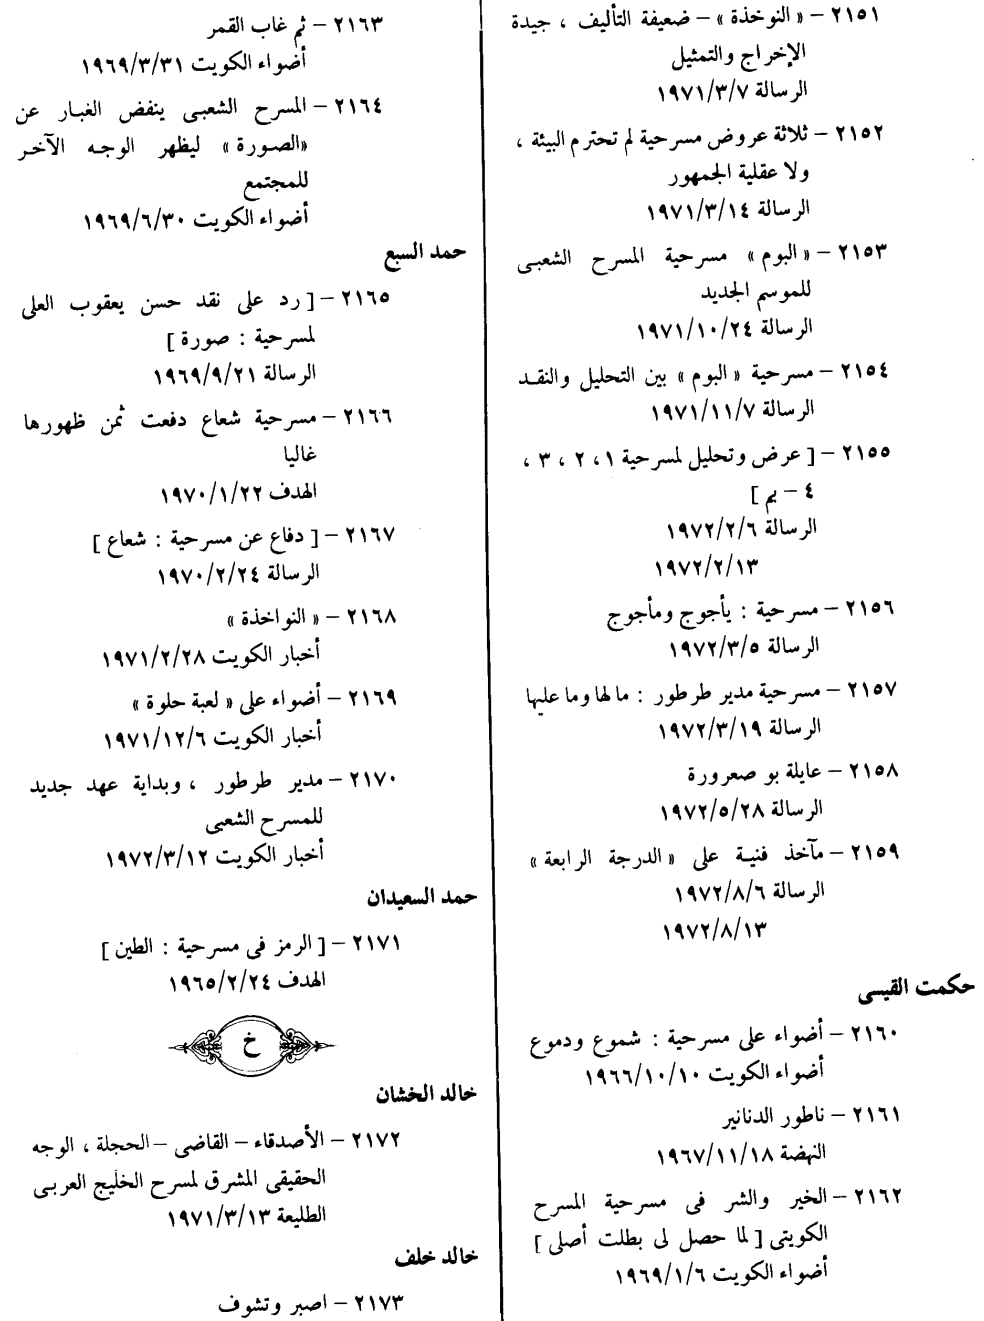 ٢١٥١ – « النوخذة » – ضعيفة التأليف ، جيدة
الإخراج والتمثيل
الرسالة ١٩٧١/٣/٧
٢١٥٢ – ثلاثة عروض مسرحية لم تحترم البيئة ،
ولا عقلية الجمهور
الرسالة ١٩٧١/٣/١٤
٢١٥٣ – « البوم » مسرحية المسرح الشعبى
للموسم الجديد
الرسالة ١٩٧١/١٠/٢٤
٢١٥٤ – مسرحية « البوم » بين التحليل والنقد
الرسالة ١٩٧١/١١/٧
٢١٥٥ – [ عرض وتحليل لمسرحية ١ ، ٢ ، ٣ ،
٤ – بم ]
الرسالة ١٩٧٢/٢/٦
١٩٧٢/٢/١٣
٢١٥٦ – مسرحية : يأجوج ومأجوج
الرسالة ١٩٧٢/٣/٥
٢١٥٧ – مسرحية مدير طرطور : ما لها وما عليها
الرسالة ١٩٧٢/٣/١٩
٢١٥٨ – عايلة بو صعرورة
الرسالة ١٩٧٢/٥/٢٨
٢١٥٩ – مآخذ فنية على « الدرجة الرابعة »
الرسالة ١٩٧٢/٨/٦
١٩٧٢/٨/١٣
حكمت القيسى
٢١٦٠ – أضواء على مسرحية : شموع ودموع
أضواء الكويت ١٩٦٦/١٠/١٠
٢١٦١ – ناطور الدنانير
النهضة ١٩٦٧/١١/١٨
٢١٦٢ – الخير والشر فى مسرحية المسرح
الكويتى [ لما حصل لى بطلت أصلى ]
أضواء الكويت ١٩٦٩/١/٦
٢١٦٣ – ثم غاب القمر
أضواء الكويت ١٩٦٩/٣/٣١
٢١٦٤ – المسرح الشعبى ينفض الغبار عن
«الصورة » ليظهر الوجه الآخر
للمجتمع
أضواء الكويت ١٩٦٩/٦/٣٠
حمد السبع
٢١٦٥ – [ رد على نقد حسن يعقوب العلى
لمسرحية : صورة ]
الرسالة ١٩٦٩/٩/٢١
٢١٦٦ – مسرحية شعاع دفعت ثمن ظهورها
غاليا
الهدف ١٩٧٠/١/٢٢
٢١٦٧ – [ دفاع عن مسرحية : شعاع ]
الرسالة ١٩٧٠/٢/٢٤
٢١٦٨ – « النواخذة »
أخبار الكويت ١٩٧١/٢/٢٨
٢١٦٩ – أضواء على « لعبة حلوة »
أخبار الكويت ١٩٧١/١٢/٦
٢١٧٠ – مدير طرطور ، وبداية عهد جديد
للمسرح الشعبى
أخبار الكويت ١٩٧٢/٣/١٢
حمد السعيدان
٢١٧١ – [ الرمز فى مسرحية : الطين ]
الهدف ١٩٦٥/٢/٢٤
خ
خالد الخشان
٢١٧٢ – الأصدقاء – القاضى – الحجلة ، الوجه
الحقيقى المشرق لمسرح الخليج العربى
الطليعة ١٩٧١/٣/١٣
خالد خلف
٢١٧٣ – اصبر وتشوف